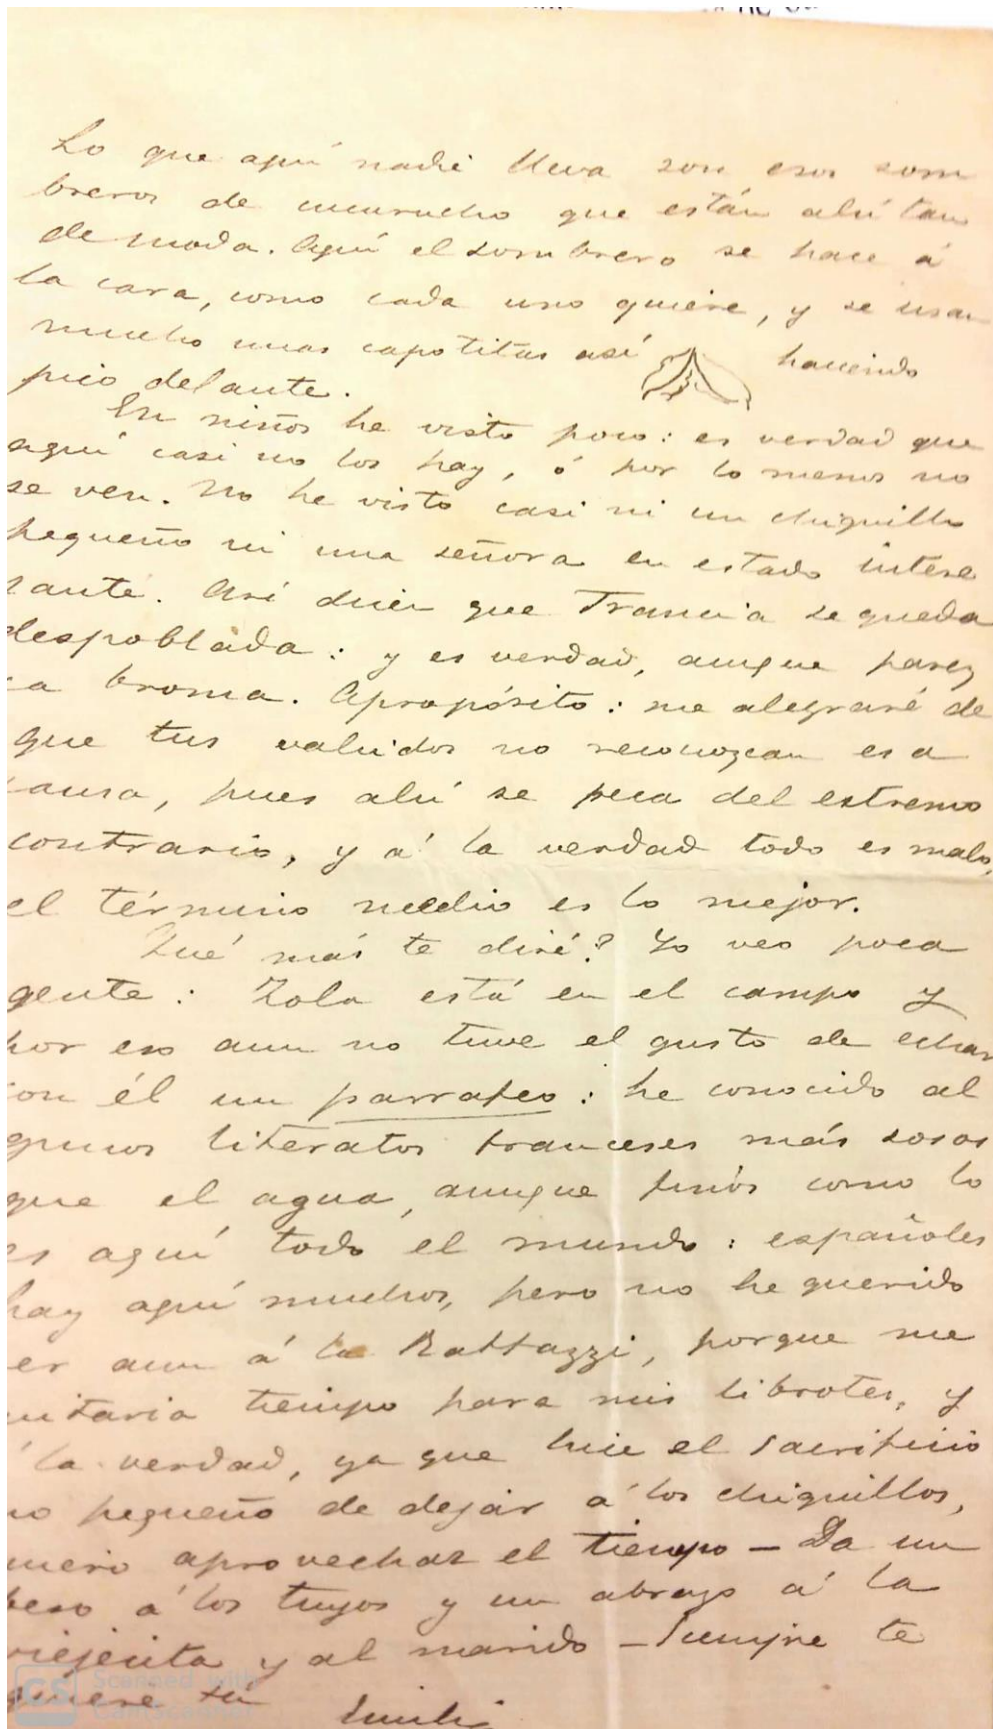 Lo que aquí nadie lleva son esos som
breros de cucurucho que están ahí tan
de moda. Aquí el sombrero se hace á
la cara, como cada uno quiere, y se usan
mucho unas capotitas así haciendo
pico delante.
En niños he visto poco: es verdad que
aquí casi no los hay, ó por lo menos no
se ven. No he visto casi ni un chiquillo
pequeño ni una señora en estado intere
sante. Así dicen que Francia se queda
despoblada: y es verdad, aunque parez
ca broma. Apropósito: me alegraré de
que tus vahidos no reconozcan esa
causa, pues ahí se peca del estremo
contrario, y á la verdad todo es malo,
el término medio es lo mejor.
Qué más te diré? Yo veo poca
gente: Zola está en el campo y
por eso aun no tuve el gusto de echar
con él un parrafeo: he conocido al
gunos literatos franceses más sosos
que el agua, aunque finos como lo
es aquí todo el mundo: españoles
hay aquí muchos, pero no he querido
ver aun á la Rattazzi, porque me
quitaria tiempo para mis librotes, y
á la verdad, ya que hice el sacrificio
no pequeño de dejar á los chiquillos,
quiero aprovechar el tiempo — Da un
beso á los tuyos y un abrazo á la
viejecita y al marido — Siempre te
quiere tu Emilia
CS Scanned with
CamScanner